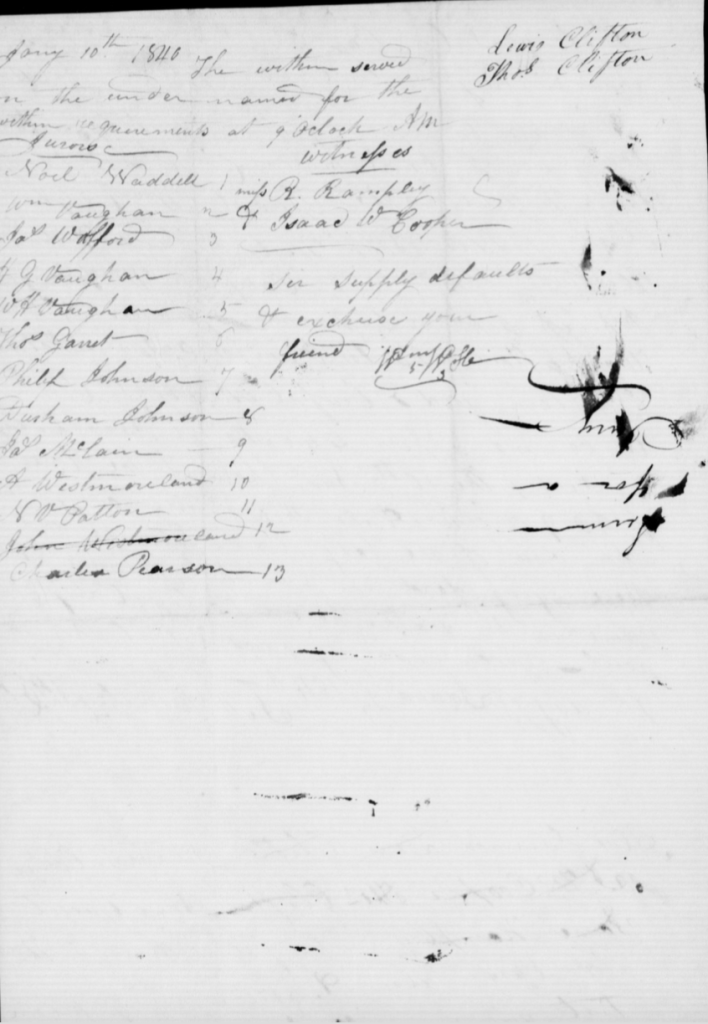 Jany 10th 1840 The within served
on the under named for the
within requirements at 9 oclock AM
Jurors
Noel Waddell 1
Wm Vaughan 2
Jas Wofford 3
G Vaughan 4
W H Vaughan 5
Thos Ganet 6
Philip Johnson 7
Durham Johnson 8
Jas McClain 9
A Westmoreland 10
N V Patton 11
John Westmoreland 12
Charles Pearson 13
witnesses
miss R. Rampley
& Isaac W Cooper
sir supply defaults
& exchuse your
friend
Lewis Clifton
Thos Clifton